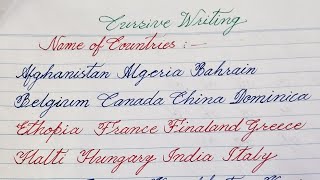 Cursive Writing
Name of Countries :-
Afghanistan Algeria Bahrain
Belgium Canada China Dominica
Ethopia France Finaland Greece
Haiti Hungary India Italy